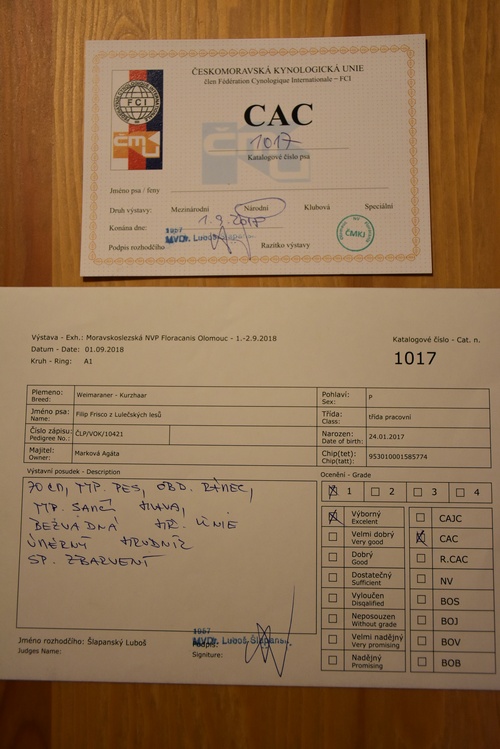 ČESKOMORAVSKÁ KYNOLOGICKÁ UNIE
člen Fédération Cynologique Internationale – FCI
FCI
ČMKU
CAC
1017
Katalogové číslo psa
Jméno psa / feny
Druh výstavy: Mezinárodní Národní Klubová Speciální
Konána dne: 1.9.2018
1957
Podpis rozhodčího MVDr. Luboš Razítko výstavy
ČMKJ
Výstava - Exh.: Moravskoslezská NVP Floracanis Olomouc - 1.-2.9.2018
Datum - Date: 01.09.2018
Kruh - Ring: A1
Katalogové číslo - Cat. n.
1017
Plemeno: Breed: Weimaraner - Kurzhaar
Pohlaví: Sex: P
Jméno psa: Name: Filip Frisco z Lulečských lesů
Třída: Class: třída pracovní
Číslo zápisu: Pedigree No.: ČLP/VOK/10421
Narozen: Date of birth: 24.01.2017
Majitel: Owner: Marková Agáta
Chip(tet): Chip(tatt): 953010001585774
Výstavní posudek - Description
Ocenění - Grade
70 CM, TYP. PES, OBD. RÁMEC,
TYP. SAMČÍ HLAVA,
BEZVADNÁ HR. LINIE
ÚMĚRNÝ HRUDNÍK
SP. ZBARVENÍ
1 2 3 4
Výborný Excelent
Velmi dobrý Very good
Dobrý Good
Dostatečný Sufficient
Vyloučen Disqalified
Neposouzen Without grade
Velmi nadějný Very promising
Nadějný Promising
CAJC
CAC
R.CAC
NV
BOS
BOJ
BOV
BOB
Jméno rozhodčího: Šlapanský Luboš
Judges Name:
1957
MVDr. Luboš Šlapanský
Podpis:
Signiture: